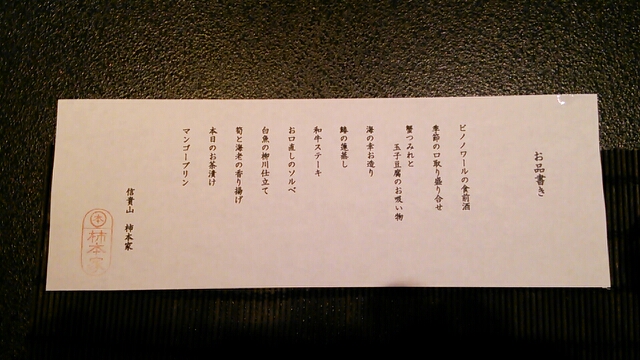 お品書き
ピノノワールの食前酒
季節の口取り盛り合せ
蟹つみれと
玉子豆腐のお吸い物
海の幸お造り
鰆の蓮蒸し
和牛ステーキ
お口直しのソルベ
白魚の柳川仕立て
筍と海老の香り揚げ
本日のお茶漬け
マンゴープリン
信貴山 柿本家
柿本家